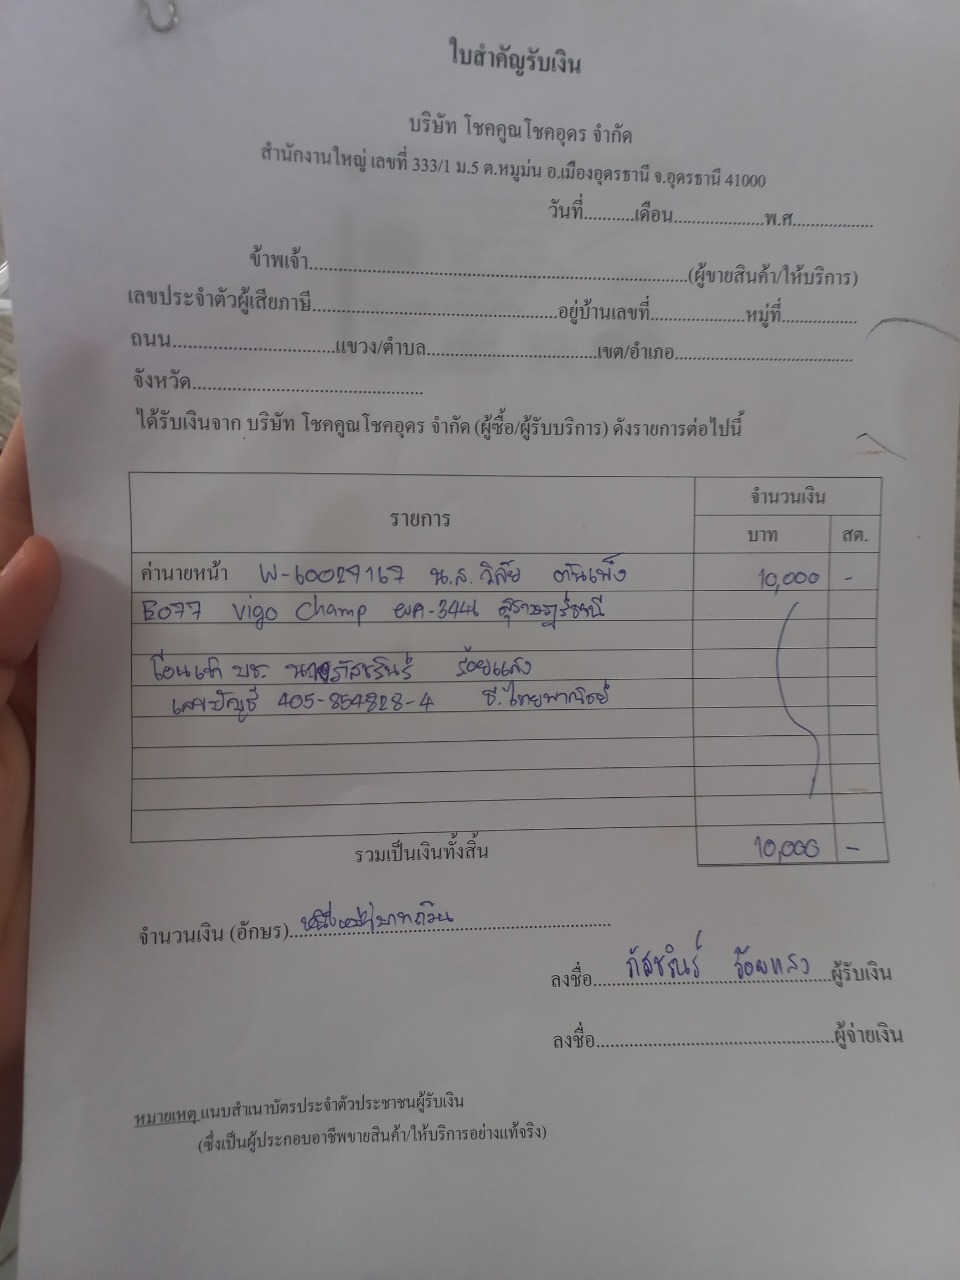 ใบสำคัญรับเงิน
บริษัท โชคคูณโชคอุดร จำกัด
สำนักงานใหญ่ เลขที่ 333/1 ม.5 ต.หมูม่น อ.เมืองอุดรธานี จ.อุดรธานี 41000
วันที่...........เดือน....................พ.ศ..................
ข้าพเจ้า................................................................................(ผู้ขายสินค้า/ให้บริการ)
เลขประจำตัวผู้เสียภาษี....................................................อยู่บ้านเลขที่....................หมู่ที่................
ถนน..................................แขวง/ตำบล....................................เขต/อำเภอ......................................
จังหวัด.................................................
ได้รับเงินจาก บริษัท โชคคูณโชคอุดร จำกัด (ผู้ซื้อ/ผู้รับบริการ) ดังรายการต่อไปนี้
รายการ จำนวนเงิน
บาท สต.
ค่านายหน้า W-60029167 น.ส. วิลัย ตันเพ็ง 10,000 -
B077 Vigo Champ ผค-3441 สุราษฎร์ธานี
โอนเข้า บช. ภัสชรินร์ ร้อยแสง
เลขบัญชี 405-854828-4 ธ.ไทยพาณิชย์
รวมเป็นเงินทั้งสิ้น 10,000 -
จำนวนเงิน (อักษร) หนึ่งหมื่นบาทถ้วน
ลงชื่อ ภัสชรินร์ ร้อยแสง ผู้รับเงิน
ลงชื่อ..................................................ผู้จ่ายเงิน
หมายเหตุ แนบสำเนาบัตรประจำตัวประชาชนผู้รับเงิน
(ซึ่งเป็นผู้ประกอบอาชีพขายสินค้า/ให้บริการอย่างแท้จริง)